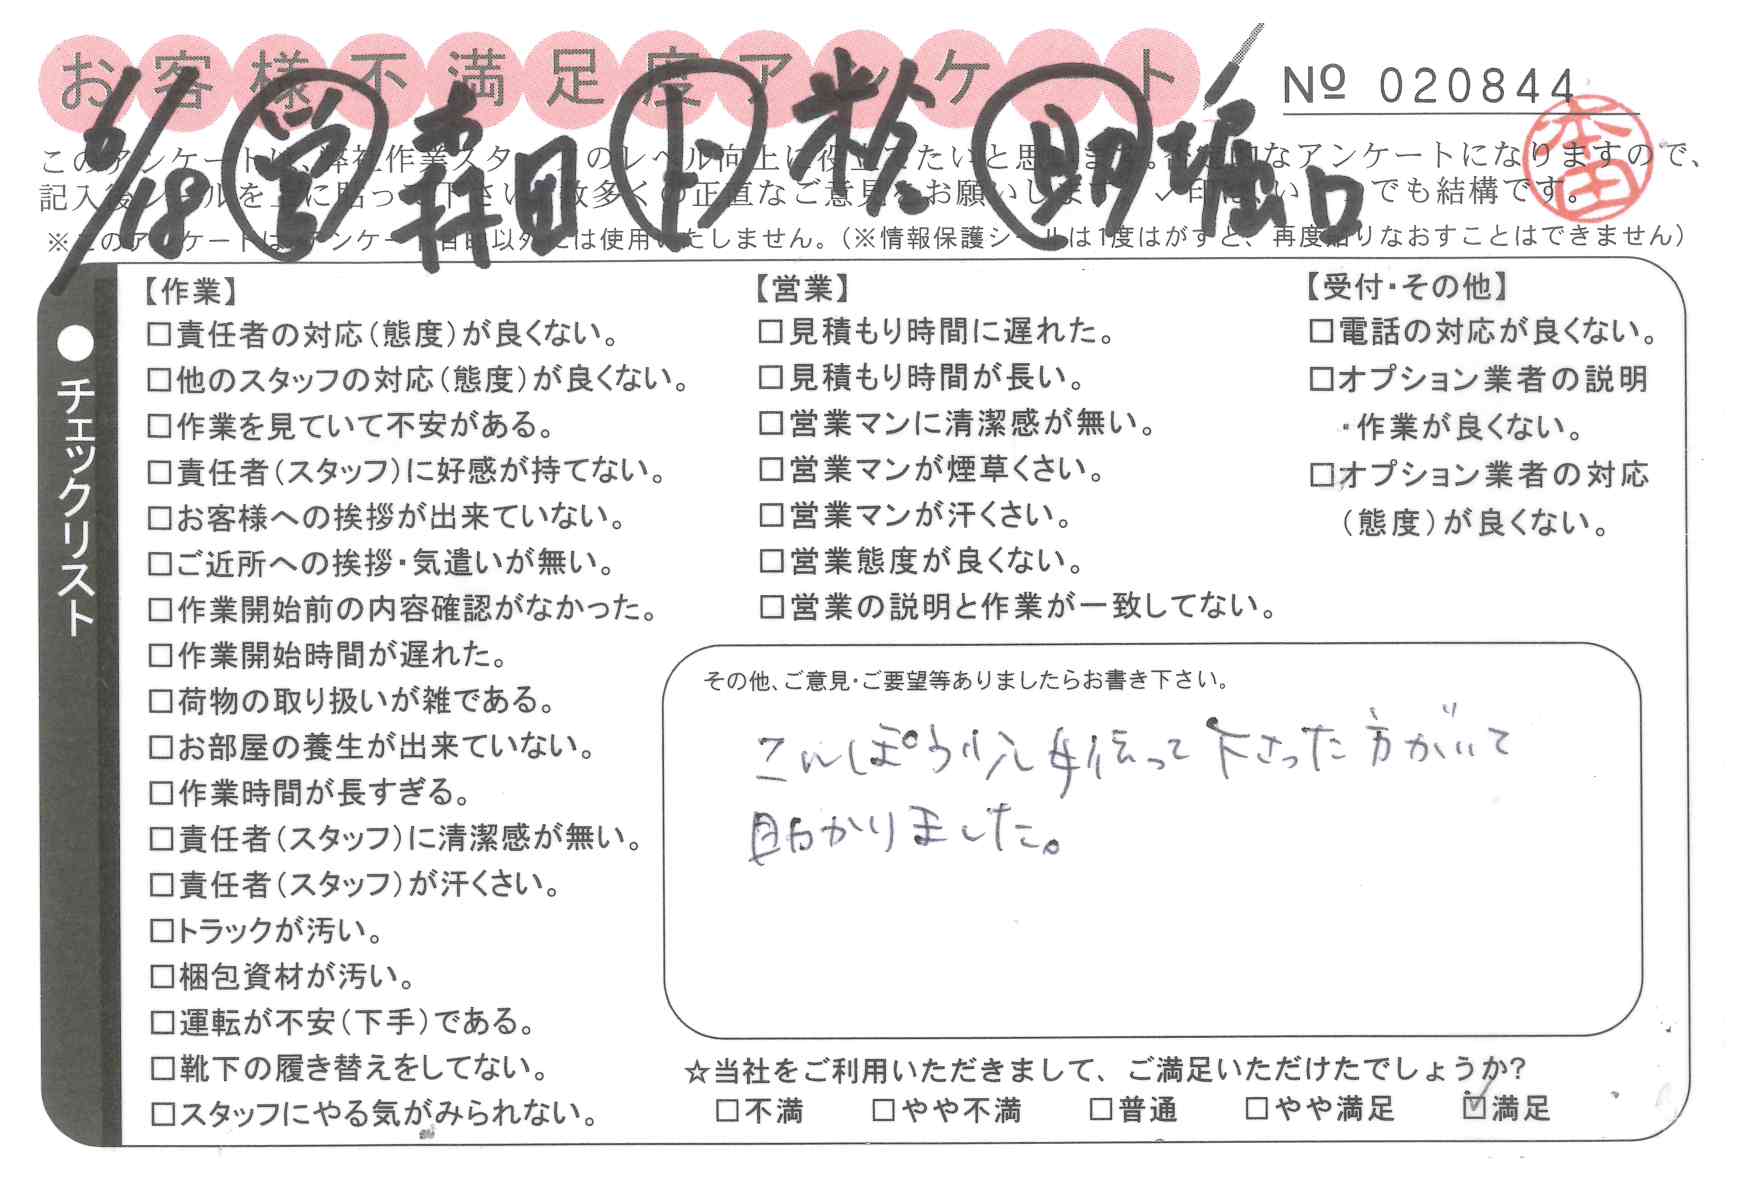 お客様不満足度アンケート
№ 020844
6/18 営 森田 ト 助 堀口
本田
このアンケートは、弊社作業スタッフのレベル向上に役立てたいと思います。否定的なアンケートになりますので、
記入後シールを上に貼って下さい。数多くの正直なご意見をお願いします。✓印は、いくつでも結構です。
※このアンケートは、アンケート目的以外には使用いたしません。(※情報保護シールは1度はがすと、再度貼りなおすことはできません)
●チェックリスト
【作業】
□責任者の対応(態度)が良くない。
□他のスタッフの対応(態度)が良くない。
□作業を見ていて不安がある。
□責任者(スタッフ)に好感が持てない。
□お客様への挨拶が出来ていない。
□ご近所への挨拶・気遣いが無い。
□作業開始前の内容確認がなかった。
□作業開始時間が遅れた。
□荷物の取り扱いが雑である。
□お部屋の養生が出来ていない。
□作業時間が長すぎる。
□責任者(スタッフ)に清潔感が無い。
□責任者(スタッフ)が汗くさい。
□トラックが汚い。
□梱包資材が汚い。
□運転が不安(下手)である。
□靴下の履き替えをしてない。
□スタッフにやる気がみられない。
【営業】
□見積もり時間に遅れた。
□見積もり時間が長い。
□営業マンに清潔感が無い。
□営業マンが煙草くさい。
□営業マンが汗くさい。
□営業態度が良くない。
□営業の説明と作業が一致してない。
【受付・その他】
□電話の対応が良くない。
□オプション業者の説明
・作業が良くない。
□オプション業者の対応
(態度)が良くない。
その他、ご意見・ご要望等ありましたらお書き下さい。
こんぽう少し手伝って下さった方がいて
助かりました。
☆当社をご利用いただきまして、ご満足いただけたでしょうか?
□不満 □やや不満 □普通 □やや満足 ☑満足